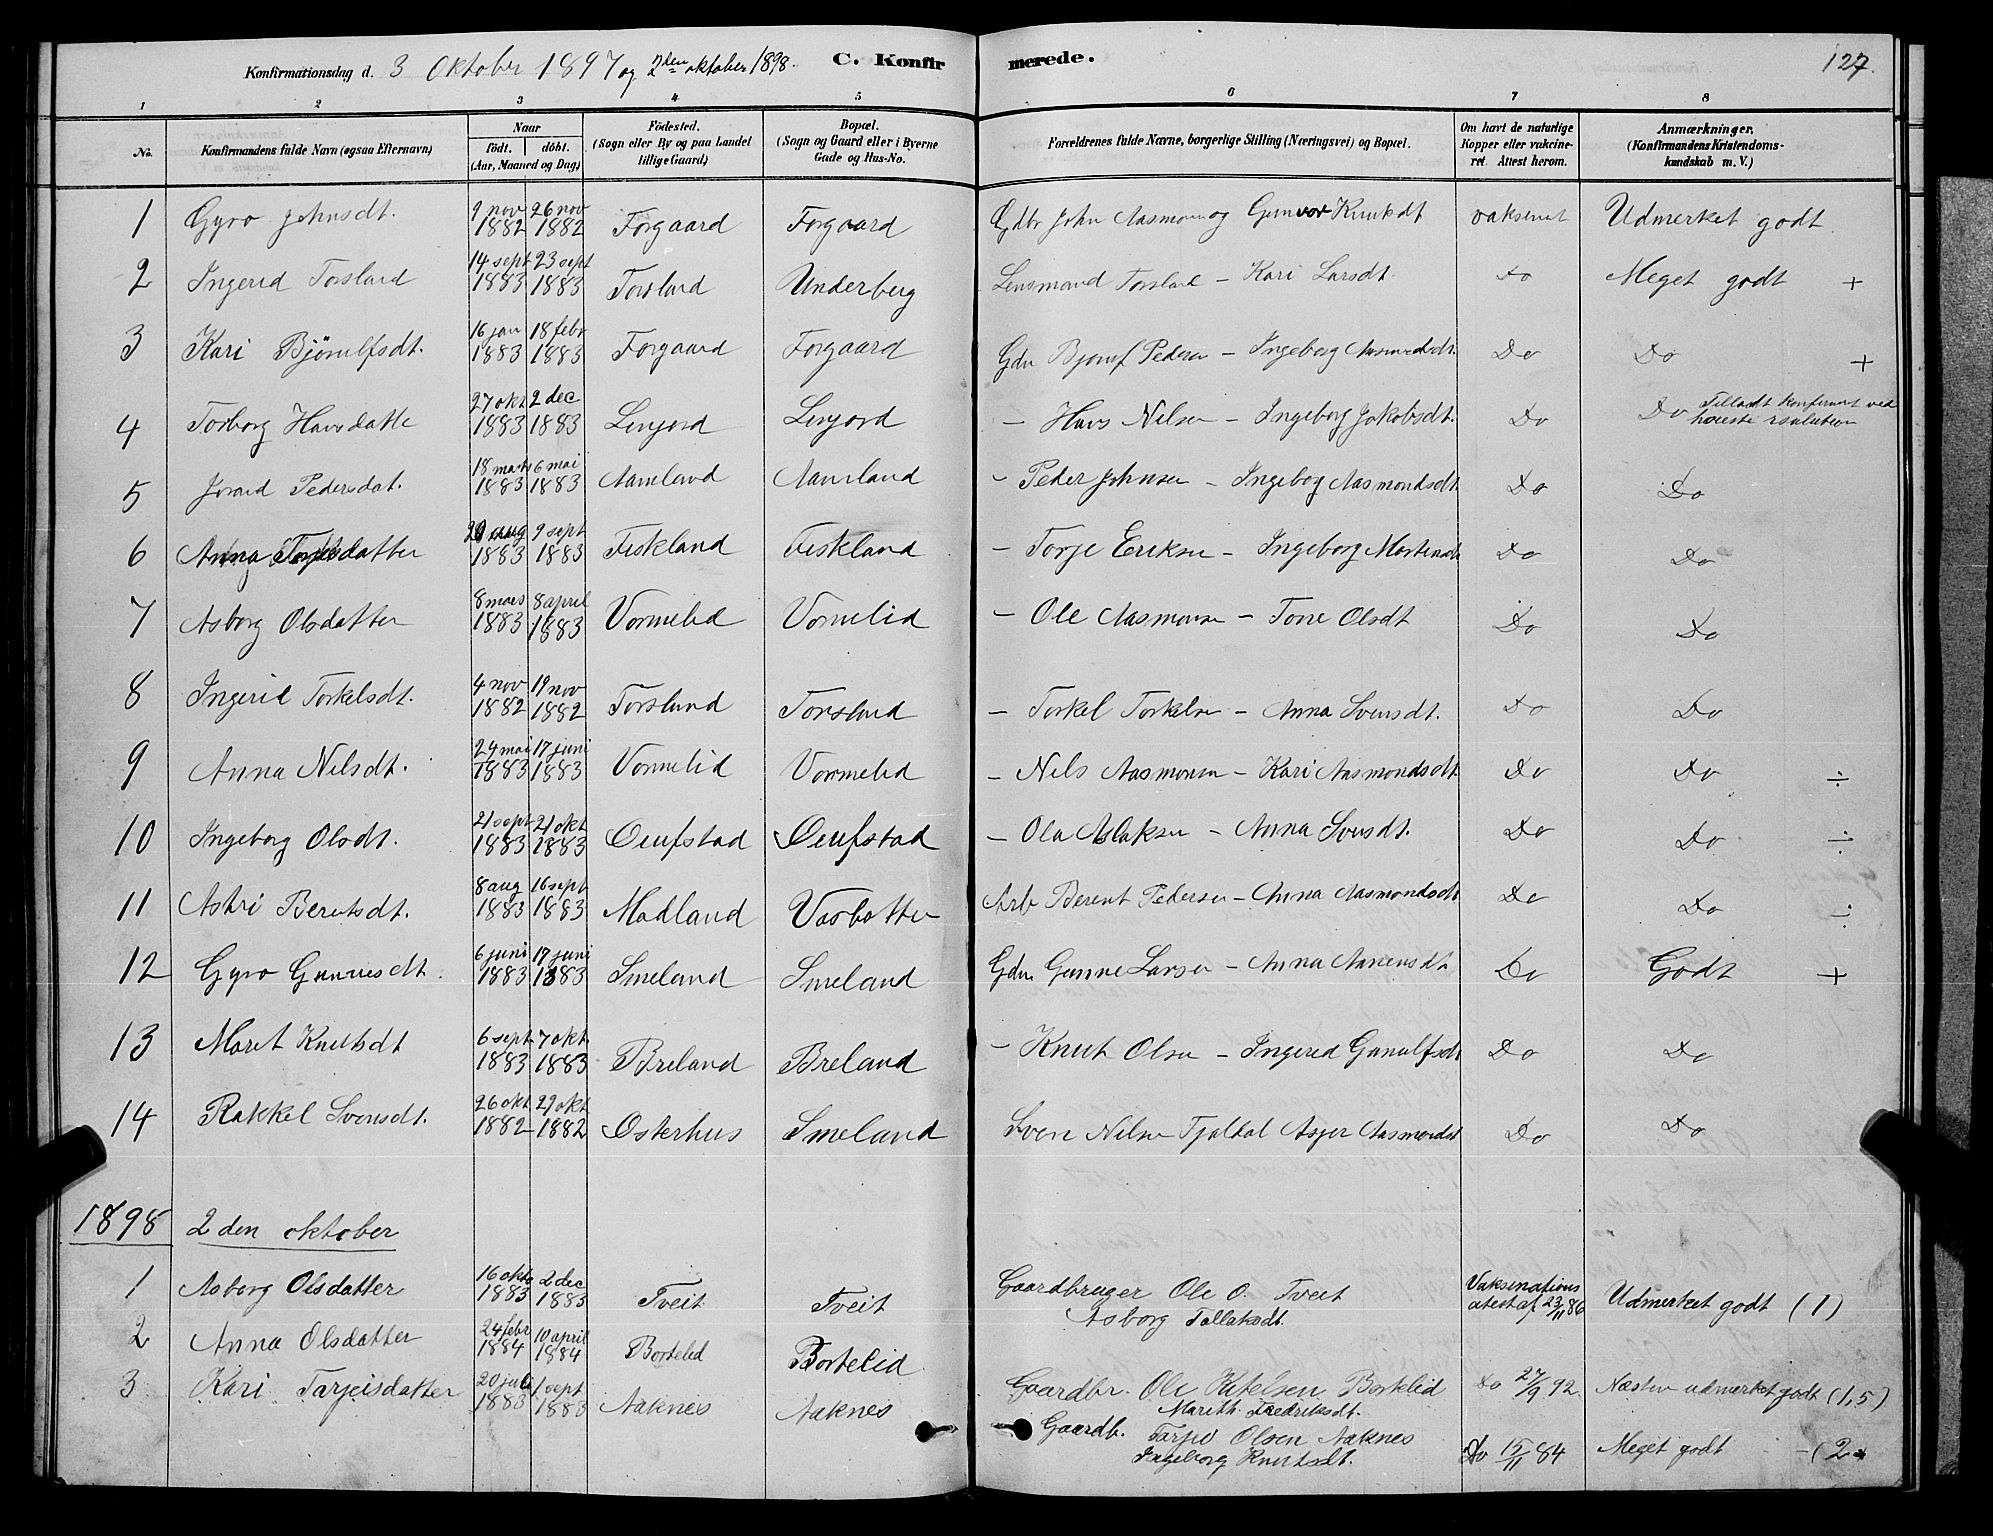 Konfirmationsdag d. 3 Oktober 1897 og 2den oktober 1898. C. Konfirmerede. 127.
1 2 3 4 5 6 7 8
No. Konfirmandens fulde Navn (ogsaa Efternavn) Naar födt. döbt. (Aar, Maaned og Dag) Födested. (Sogn eller By og paa Landet tillige Gaard) Bopæl. (Sogn og Gaard eller i Byerne Gade og Hus-No. Forældrenes fulde Navne, borgerlige Stilling (Næringsvei) og Bopæl. Om havt de naturlige Kopper eller vakcineret. Attest herom. Anmærkninger. (Konfirmandens Kristendomskundskab m. V.)
1 Gyro Johnsdt. 9 nov 1882 26 nov 1882 Forgaard Forgaard Gdbr John Aasmon og Gunvor Knutsdt vaksinat Udmerket godt
2 Ingerid Torsland 14 sept 1883 23 sept 1883 Torsland Underberg Lensmand Torsland - Kari Larsdt. Do Meget godt +
3 Kari Bjönulfsdt. 16 jan 1883 18 febr 1883 Forgaard Forgaard Gdn Bjonulf Pedersen - Ingeborg Aasmundsdt. Do Do +
4 Torborg Hansdatte 27 okt 1883 2 dec 1883 Lenjord Lenjord - Hans Nilsen - Ingeborg Jakobsdt. Do Do Tilladt konfirmert ved höieste resolution
5 Jorand Pedersdat. 18 mars 1883 6 mai 1883 Aamland Aamland - Peder Johnsen - Ingeborg Aasmondsdt. Do Do
6 Anna Torjesdatter 20 aug 1883 9 sept 1883 Fiskland Fiskland - Torje Eriksen - Ingeborg Mortensdt Do Do
7 Asborg Olsdatter 8 mars 1883 8 april 1883 Vormelid Vormelid - Ole Aasmonsen - Tone Olsdt Do Do
8 Ingerid Torkelsdt. 4 nov 1882 19 nov 1882 Torsland Torsland - Torkel Torkelsen - Anna Svensdt. Do Do
9 Anna Nilsdt. 24 mai 1883 17 juni 1883 Vormelid Vormelid - Nils Aasmonsen - Kari Aasmondsdt Do Do ÷
10 Ingeborg Olsdt. 21 sept 1883 21 okt 1883 Øeufstad Øeufstad - Ola Aslaksen - Anna Svensdt. Do Do ÷
11 Astri Berentsdt. 8 aug 1883 16 sept 1883 Modland Vasbotten Arb Berent Pedersen - Anna Aasmondsdt Do Do ÷
12 Gyro Gunnesdt. 6 juni 1883 17 juni 1883 Smeland Smeland Gdn Gunne Larsen - Anna Aanensdt. Do Godt +
13 Maret Knutsdt 6 sept 1883 7 okt 1883 Breland Breland - Knut Olsen - Ingerid Gunulfsdt Do Do
14 Rakkel Svensdt. 26 okt 1882 29 okt 1882 Osterhus Smeland Sven Nilsen Tjaldal Asjer Aasmondsdt Do Do
1898 2 den oktober
1 Asborg Olsdatter 16 okto 1883 2 dec 1883 Tveit Tveit Gaardbruger Ole O. Tveit Vaksinations atest af 23/11 86 Udmerket godt (1)
Asborg Tallaksdt.
2 Anna Olsdatter 24 febr 1884 10 april 1884 Bortelid Bortelid Gaardbr. Ole Ketelsen Bortelid Do 27/9 92. Næsten udmerket godt (1,5)
Marith. Fredriksdt.
3 Kari Tarjeisdatter 20 juli 1883 1 sept 1883 Aaknes Aaknes Gaardb. Tarjei Olsen Aaknes Do 15/11 84 Meget godt - (2
Ingeborg Knutsdt.